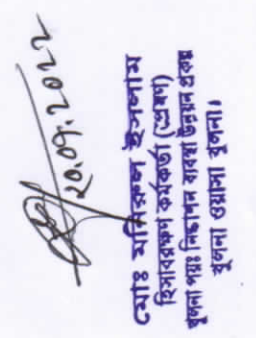 ২০.০৭.২০২২
মোঃ মনিরুল ইসলাম
হিসাবরক্ষণ কর্মকর্তা (প্রেষণে)
খুলনা পয়ঃ নিষ্কাশন ব্যবস্থা উন্নয়ন প্রকল্প
খুলনা ওয়াসা খুলনা।